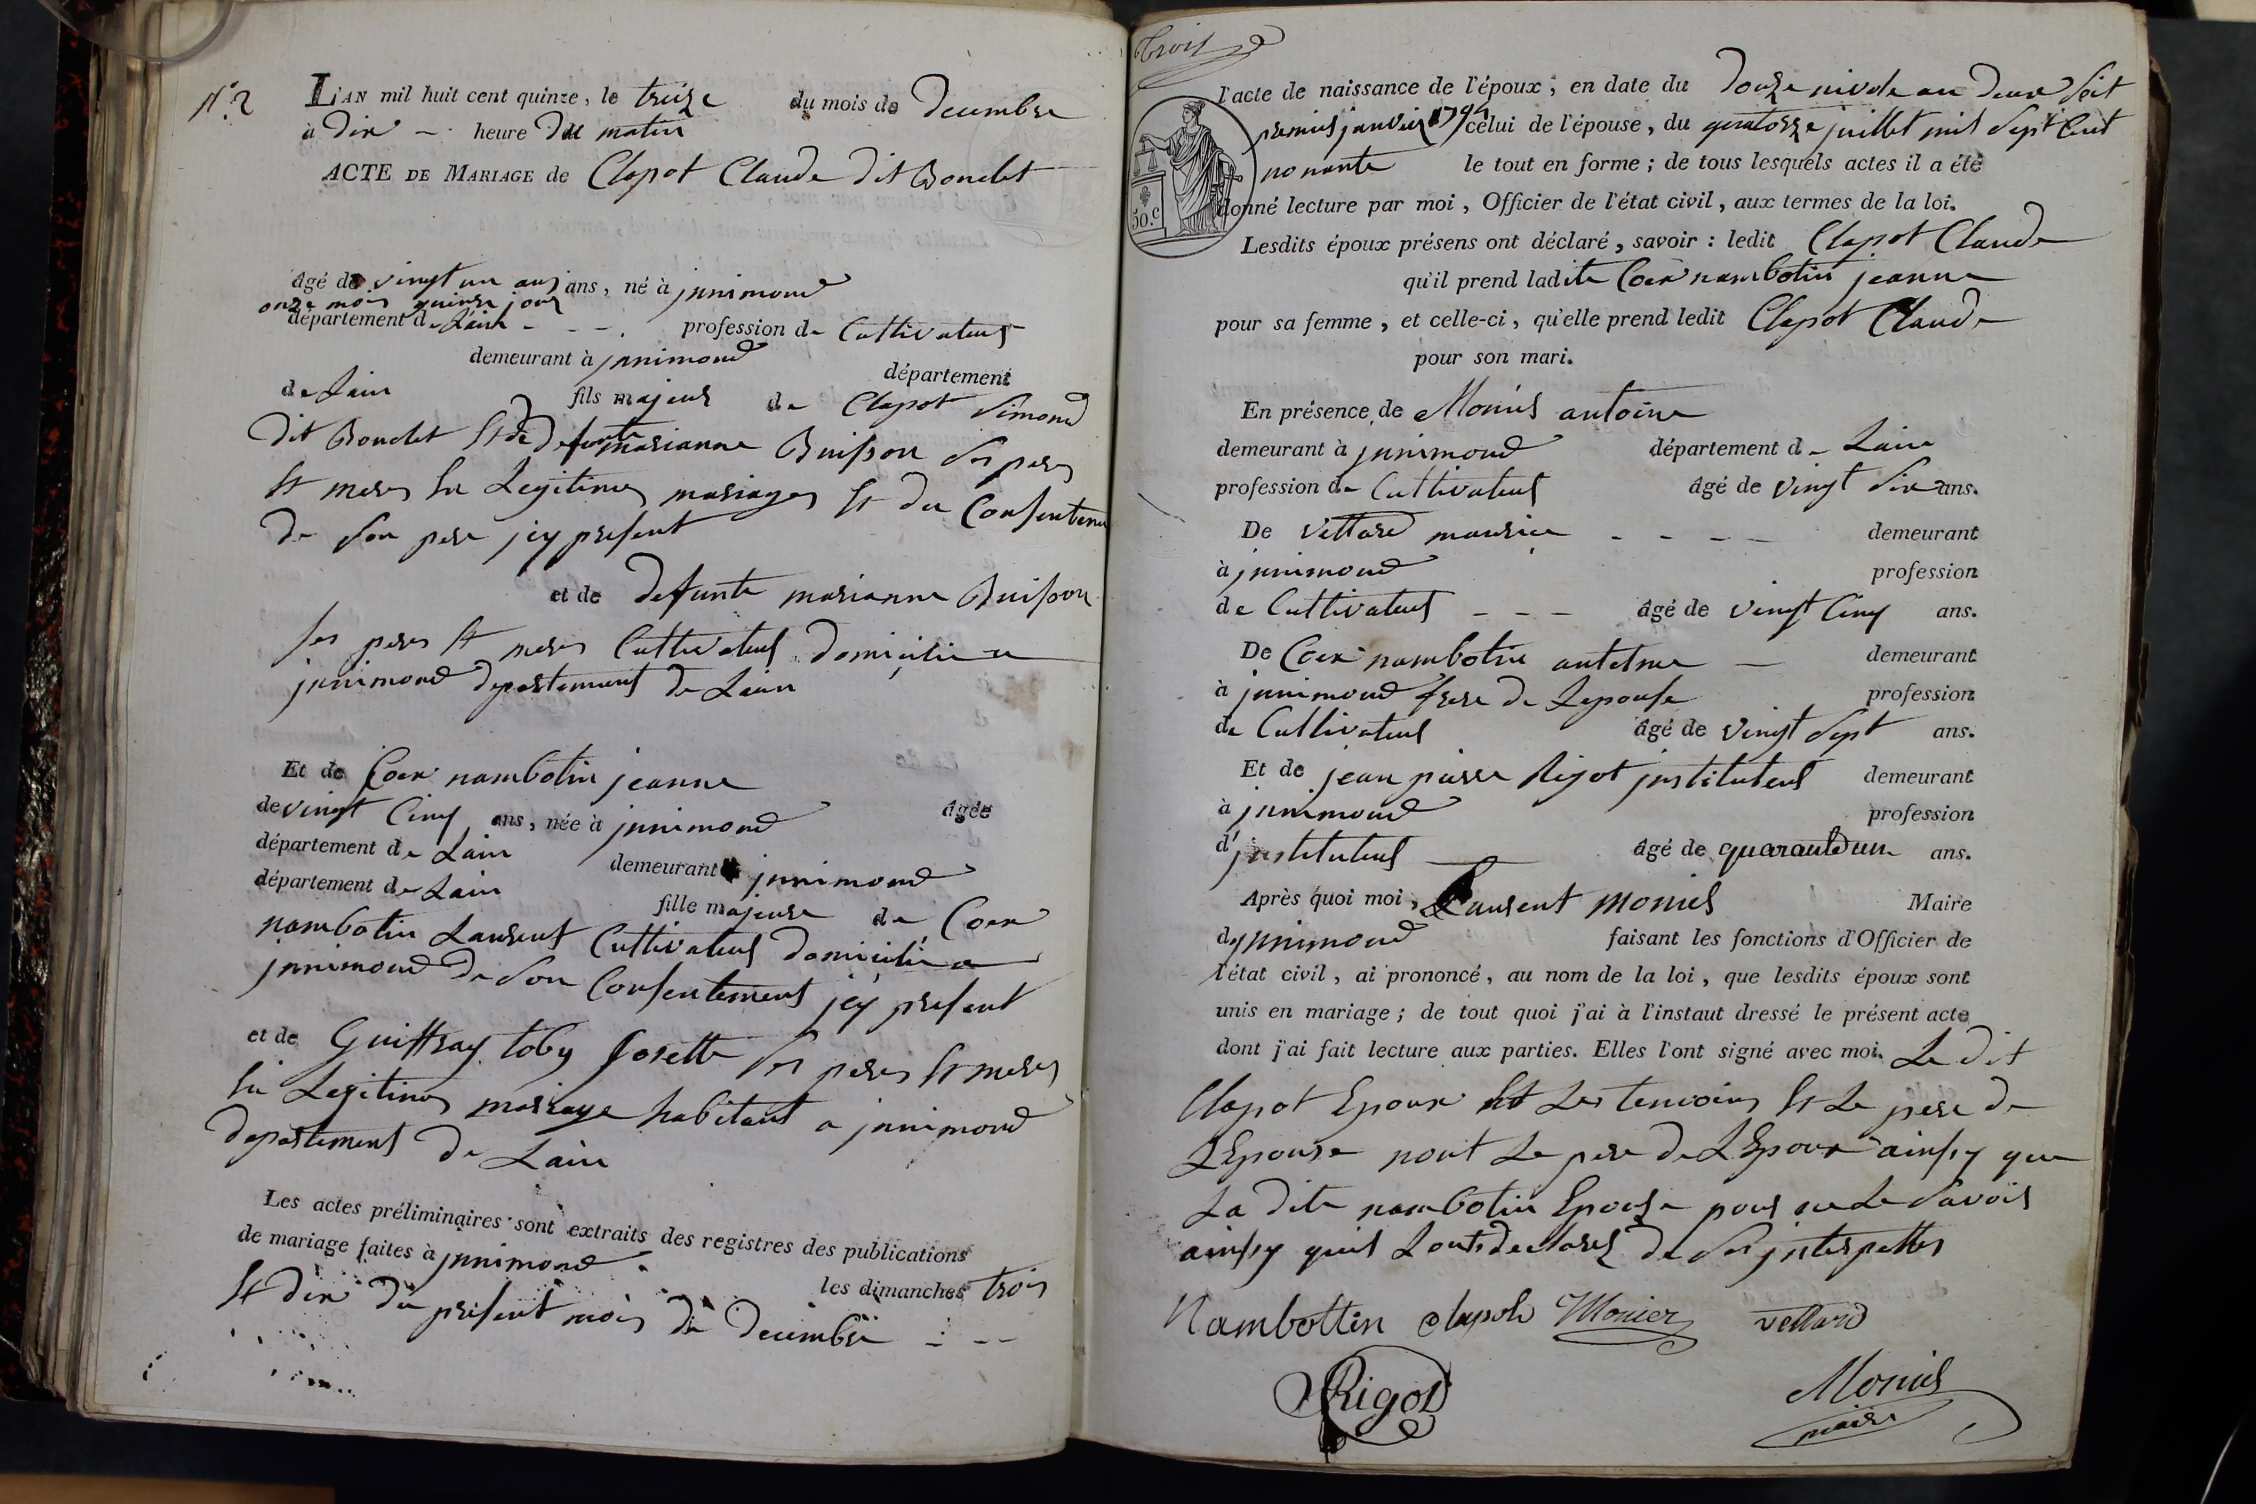 N.° 2
L'AN mil huit cent quinze, le treize du mois de decembre
à dix - heure du matin
ACTE DE MARIAGE de Clapot Claude dit Bonclet
âgé de vingt un ans ans, né à jnnimond
onze mois quinze jour
département de Lain - - - . profession de Cultivateur
demeurant à jnnimond
département
de Lain fils majeur de Clapot Simond
dit Bonclet Et de defunte marianne Buisson ses peres
Et meres En Legitimes mariages Et du Consenteme
de son pere jcy present
et de defunte marianne Buisson
ses peres Et meres Cultivateur domicilie a
jnnimond departement de Lain
Et de Coex nambotin jeanne
âgée
de vingt Cinq ans, née à jnnimond
département de Lain demeurant à jnnimond
département de Lain fille majeure de Coex
nambotin Laurent Cultivateur domicilie a
jnnimond de son Consentement jcy present
et de Guiffray toby josette ses peres Et meres
En Legitimes mariage habitant a jnnimond
departement de Lain
Les actes préliminaires sont extraits des registres des publications
de mariage faites à jnnimond
les dimanches trois
Et dix du present mois de decembre - - -
trois
l'acte de naissance de l'époux; en date du douze nivose an deux soit
premier janvier 1794 celui de l'épouse, du quatorze juillet mil sept Cent
nonante le tout en forme; de tous lesquels actes il a été
50.c
donné lecture par moi, Officier de l'état civil, aux termes de la loi.
Lesdits époux présens ont déclaré, savoir: ledit Clapot Claude
qu'il prend ladite Coex nambotin jeanne
pour sa femme, et celle-ci, qu'elle prend ledit Clapot Claude
pour son mari.
En présence de Monier antoine
demeurant à jnnimond département de Lain
profession de Cultivateur âgé de vingt six ans.
De vettard maurice - - - - demeurant
à jnnimond profession
de Cultivateur - - - âgé de vingt Cinq ans.
De Coex nambotin antelme - demeurant
à jnnimond frere de Lepouse profession
de Cultivateur âgé de vingt sept ans.
Et de jean pierre Rigot jnstituteur demeurant
à jnnimond profession
d'jnstituteur âgé de quarante un ans.
Après quoi moi, Laurent monier Maire
dy jnnimond faisant les fonctions d'Officier de
l'état civil, ai prononcé, au nom de la loi, que lesdits époux sont
unis en mariage; de tout quoi j'ai à l'instaut dressé le présent acte
dont j'ai fait lecture aux parties. Elles l'ont signé avec moi. Le dit
Clapot Epoux Et Les temoins Et Le pere de
LEpouse nont Le pere de LEpoux ainsy que
La dite nambotin Epouse pour ne Le savoir
ainsy quils Lont declarez de ses jnterpettes
Nambottin Clapot Monier vettard
Rigot
Monier
maire